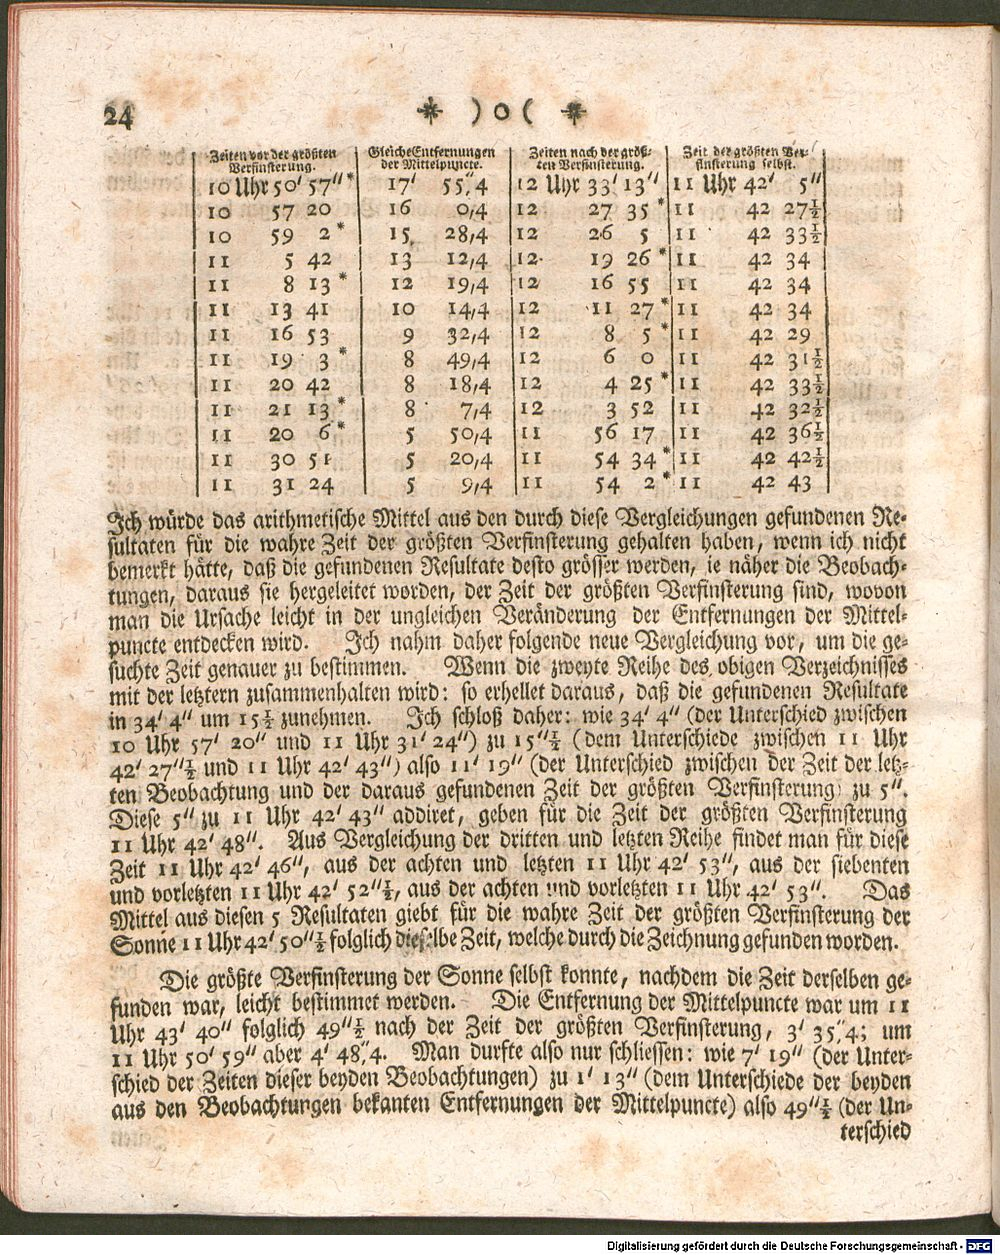 24 * ) o ( *
Zeiten vor der größten Verfinsterung. | Gleiche Entfernungen der Mittelpuncte. | Zeiten nach der größ-ten Verfinsterung. | Zeit der größten Ver-finsterung selbst.
10 Uhr 50' 57''* | 17' 55,''4 | 12 Uhr 33' 13'' | 11 Uhr 42' 5''
10 57 20 | 16 0,4 | 12 27 35* | 11 42 27½
10 59 2* | 15 28,4 | 12 26 5 | 11 42 33½
11 5 42 | 13 12,4 | 12 19 26* | 11 42 34
11 8 13* | 12 19,4 | 12 16 55 | 11 42 34
11 13 41 | 10 14,4 | 12 11 27* | 11 42 34
11 16 53 | 9 32,4 | 12 8 5* | 11 42 29
11 19 3* | 8 49,4 | 12 6 0 | 11 42 31½
11 20 42 | 8 18,4 | 12 4 25* | 11 42 33½
11 21 13* | 8 7,4 | 12 3 52 | 11 42 32½
11 20 6* | 5 50,4 | 11 56 17 | 11 42 36½
11 30 51 | 5 20,4 | 11 54 34* | 11 42 42½
11 31 24 | 5 9,4 | 11 54 2* | 11 42 43
Ich würde das arithmetische Mittel aus den durch diese Vergleichungen gefundenen Re-
sultaten für die wahre Zeit der größten Verfinsterung gehalten haben, wenn ich nicht
bemerkt hätte, daß die gefundenen Resultate desto grösser werden, je näher die Beobach-
tungen, daraus sie hergeleitet worden, der Zeit der größten Verfinsterung sind, wovon
man die Ursache leicht in der ungleichen Veränderung der Entfernungen der Mittel-
puncte entdecken wird. Ich nahm daher folgende neue Vergleichung vor, um die ge-
suchte Zeit genauer zu bestimmen. Wenn die zweyte Reihe des obigen Verzeichnisses
mit der letztern zusammenhalten wird: so erhellet daraus, daß die gefundenen Resultate
in 34' 4'' um 15½ zunehmen. Ich schloß daher: wie 34' 4'' (der Unterschied zwischen
10 Uhr 57' 20'' und 11 Uhr 31' 24'') zu 15''½ (dem Unterschiede zwischen 11 Uhr
42' 27''½ und 11 Uhr 42' 43'') also 11' 19'' (der Unterschied zwischen der Zeit der letz-
ten Beobachtung und der daraus gefundenen Zeit der größten Verfinsterung) zu 5''.
Diese 5'' zu 11 Uhr 42' 43'' addiret, geben für die Zeit der größten Verfinsterung
11 Uhr 42' 48''. Aus Vergleichung der dritten und letzten Reihe findet man für diese
Zeit 11 Uhr 42' 46'', aus der achten und letzten 11 Uhr 42' 53'', aus der siebenten
und vorletzten 11 Uhr 42' 52''½, aus der achten und vorletzten 11 Uhr 42' 53''. Das
Mittel aus diesen 5 Resultaten giebt für die wahre Zeit der größten Verfinsterung der
Sonne 11 Uhr 42' 50''½ folglich dieselbe Zeit, welche durch die Zeichnung gefunden worden.
Die größte Verfinsterung der Sonne selbst konnte, nachdem die Zeit derselben ge-
funden war, leicht bestimmet werden. Die Entfernung der Mittelpuncte war um 11
Uhr 43' 40'' folglich 49''½ nach der Zeit der größten Verfinsterung, 3' 35,''4; um
11 Uhr 50' 59'' aber 4' 48,''4. Man durfte also nur schliessen: wie 7' 19'' (der Unter-
schied der Zeiten dieser beyden Beobachtungen) zu 1' 13'' (dem Unterschiede der beyden
aus den Beobachtungen bekanten Entfernungen der Mittelpuncte) also 49''½ (der Un-
terschied
Digitalisierung gefördert durch die Deutsche Forschungsgemeinschaft - DFG